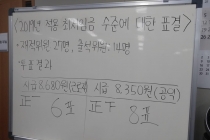 <2019년 적용 최저임금 수준에 대한 표결>
- 재적위원 27명, 출석위원 14명
- 투표결과
시급 8,680원(근로자) 시급 8,350원(공익)
正丅 6표 正下 8표